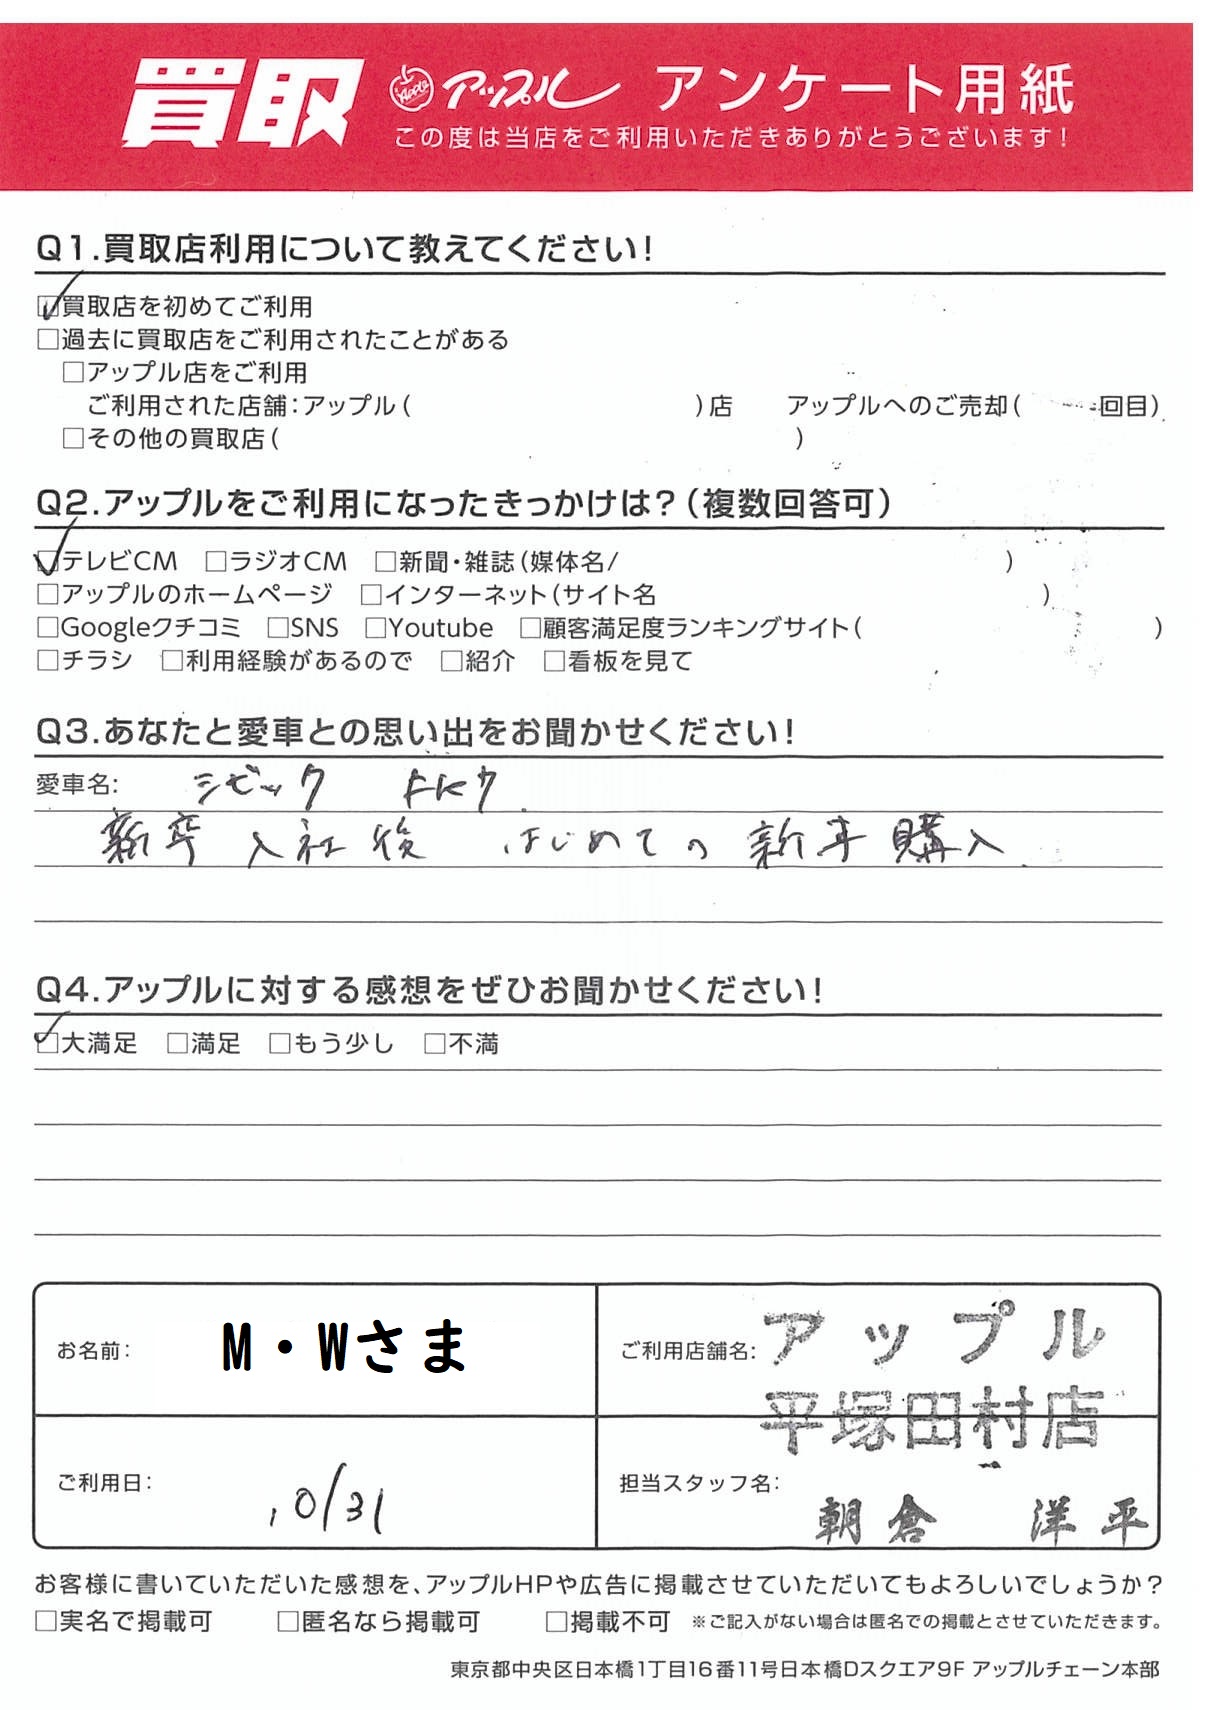 買取 Apple アップル アンケート用紙
この度は当店をご利用いただきありがとうございます!
Q1.買取店利用について教えてください!
☑買取店を初めてご利用
□過去に買取店をご利用されたことがある
□アップル店をご利用
ご利用された店舗:アップル( )店 アップルへのご売却( 回目)
□その他の買取店( )
Q2.アップルをご利用になったきっかけは?(複数回答可)
☑テレビCM □ラジオCM □新聞・雑誌(媒体名/ )
□アップルのホームページ □インターネット(サイト名 )
□Googleクチコミ □SNS □Youtube □顧客満足度ランキングサイト( )
□チラシ □利用経験があるので □紹介 □看板を見て
Q3.あなたと愛車との思い出をお聞かせください!
愛車名: シビック FK7
新卒入社後 はじめての新車購入
Q4.アップルに対する感想をぜひお聞かせください!
☑大満足 □満足 □もう少し □不満
お名前: M・Wさま
ご利用店舗名: アップル
平塚田村店
ご利用日: 10/31
担当スタッフ名: 朝倉 洋平
お客様に書いていただいた感想を、アップルHPや広告に掲載させていただいてもよろしいでしょうか?
□実名で掲載可 □匿名なら掲載可 □掲載不可 ※ご記入がない場合は匿名での掲載とさせていただきます。
東京都中央区日本橋1丁目16番11号日本橋Dスクエア9F アップルチェーン本部